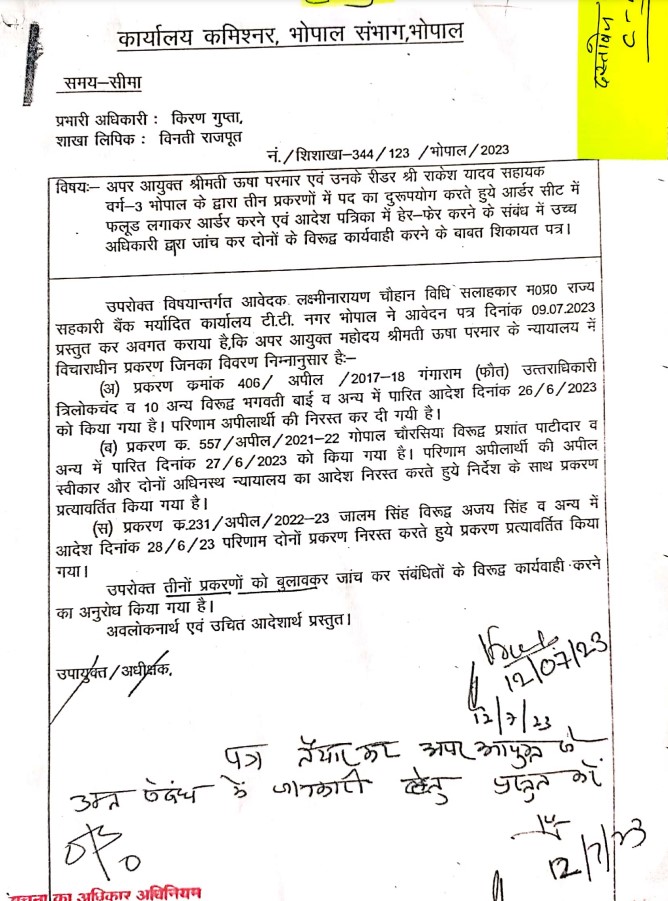 दस्तावेज
C-
कार्यालय कमिश्नर, भोपाल संभाग,भोपाल
समय–सीमा
प्रभारी अधिकारी : किरण गुप्ता,
शाखा लिपिक : विनती राजपूत
नं./शिशाखा–344/123/भोपाल/2023
विषयः– अपर आयुक्त श्रीमती ऊषा परमार एवं उनके रीडर श्री राकेश यादव सहायक
वर्ग–3 भोपाल के द्वारा तीन प्रकरणों में पद का दुरूपयोग करते हुये आर्डर सीट में
फलूड लगाकर आर्डर करने एवं आदेश पत्रिका में हेर–फेर करने के संबंध में उच्च
अधिकारी द्वारा जांच कर दोनों के विरूद्व कार्यवाही करने के बावत शिकायत पत्र।
उपरोक्त विषयान्तर्गत आवेदक लक्ष्मीनारायण चौहान विधि सलाहकार म0प्र0 राज्य
सहकारी बैंक मर्यादित कार्यालय टी.टी. नगर भोपाल ने आवेदन पत्र दिनांक 09.07.2023
प्रस्तुत कर अवगत कराया है,कि अपर आयुक्त महोदय श्रीमती ऊषा परमार के न्यायालय में
विचाराधीन प्रकरण जिनका विवरण निम्नानुसार हैः–
(अ) प्रकरण क्रमांक 406/ अपील /2017–18 गंगाराम (फौत) उत्तराधिकारी
त्रिलोकचंद व 10 अन्य विरूद्व भगवती बाई व अन्य में पारित आदेश दिनांक 26/6/2023
को किया गया है। परिणाम अपीलार्थी की निरस्त कर दी गयी है।
(ब) प्रकरण क. 557/अपील/2021–22 गोपाल चौरसिया विरूद्व प्रशांत पाटीदार व
अन्य में पारित दिनांक 27/6/2023 को किया गया है। परिणाम अपीलार्थी की अपील
स्वीकार और दोनों अधिनस्थ न्यायालय का आदेश निरस्त करते हुये निर्देश के साथ प्रकरण
प्रत्यावर्तित किया गया है।
(स) प्रकरण क्र.231/अपील/2022–23 जालम सिंह विरूद्व अजय सिंह व अन्य में
आदेश दिनांक 28/6/23 परिणाम दोनों प्रकरण निरस्त करते हुये प्रकरण प्रत्यावर्तित किया
गया।
उपरोक्त तीनों प्रकरणों को बुलावकर जांच कर संबंधितों के विरूद्व कार्यवाही करने
का अनुरोध किया गया है।
अवलोकनार्थ एवं उचित आदेशार्थ प्रस्तुत।
उपायुक्त/अधीक्षक.
12/07/23
12/7/23
पत्र तैयार कर अपर आयुक्त से
उक्त संबंध में जानकारी हेतु प्रस्तुत करें
12/7/23
सूचना का अधिकार अधिनियम